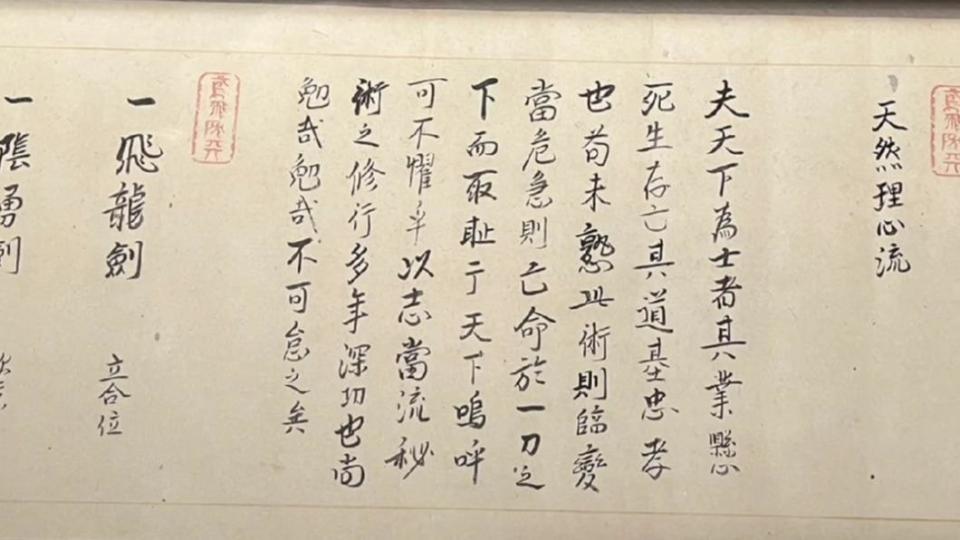 天然理心流
夫天下為士者其業縣心
死生存亡其道基忠孝
也苟未熟此術則臨變
當危急則亡命於一刀之
下而取耻于天下嗚呼
可不懼乎以志當流秘
術之修行多年深切也尚
勉哉勉哉不可怠之矣
一飛龍劍 立合位
一陰勇劍